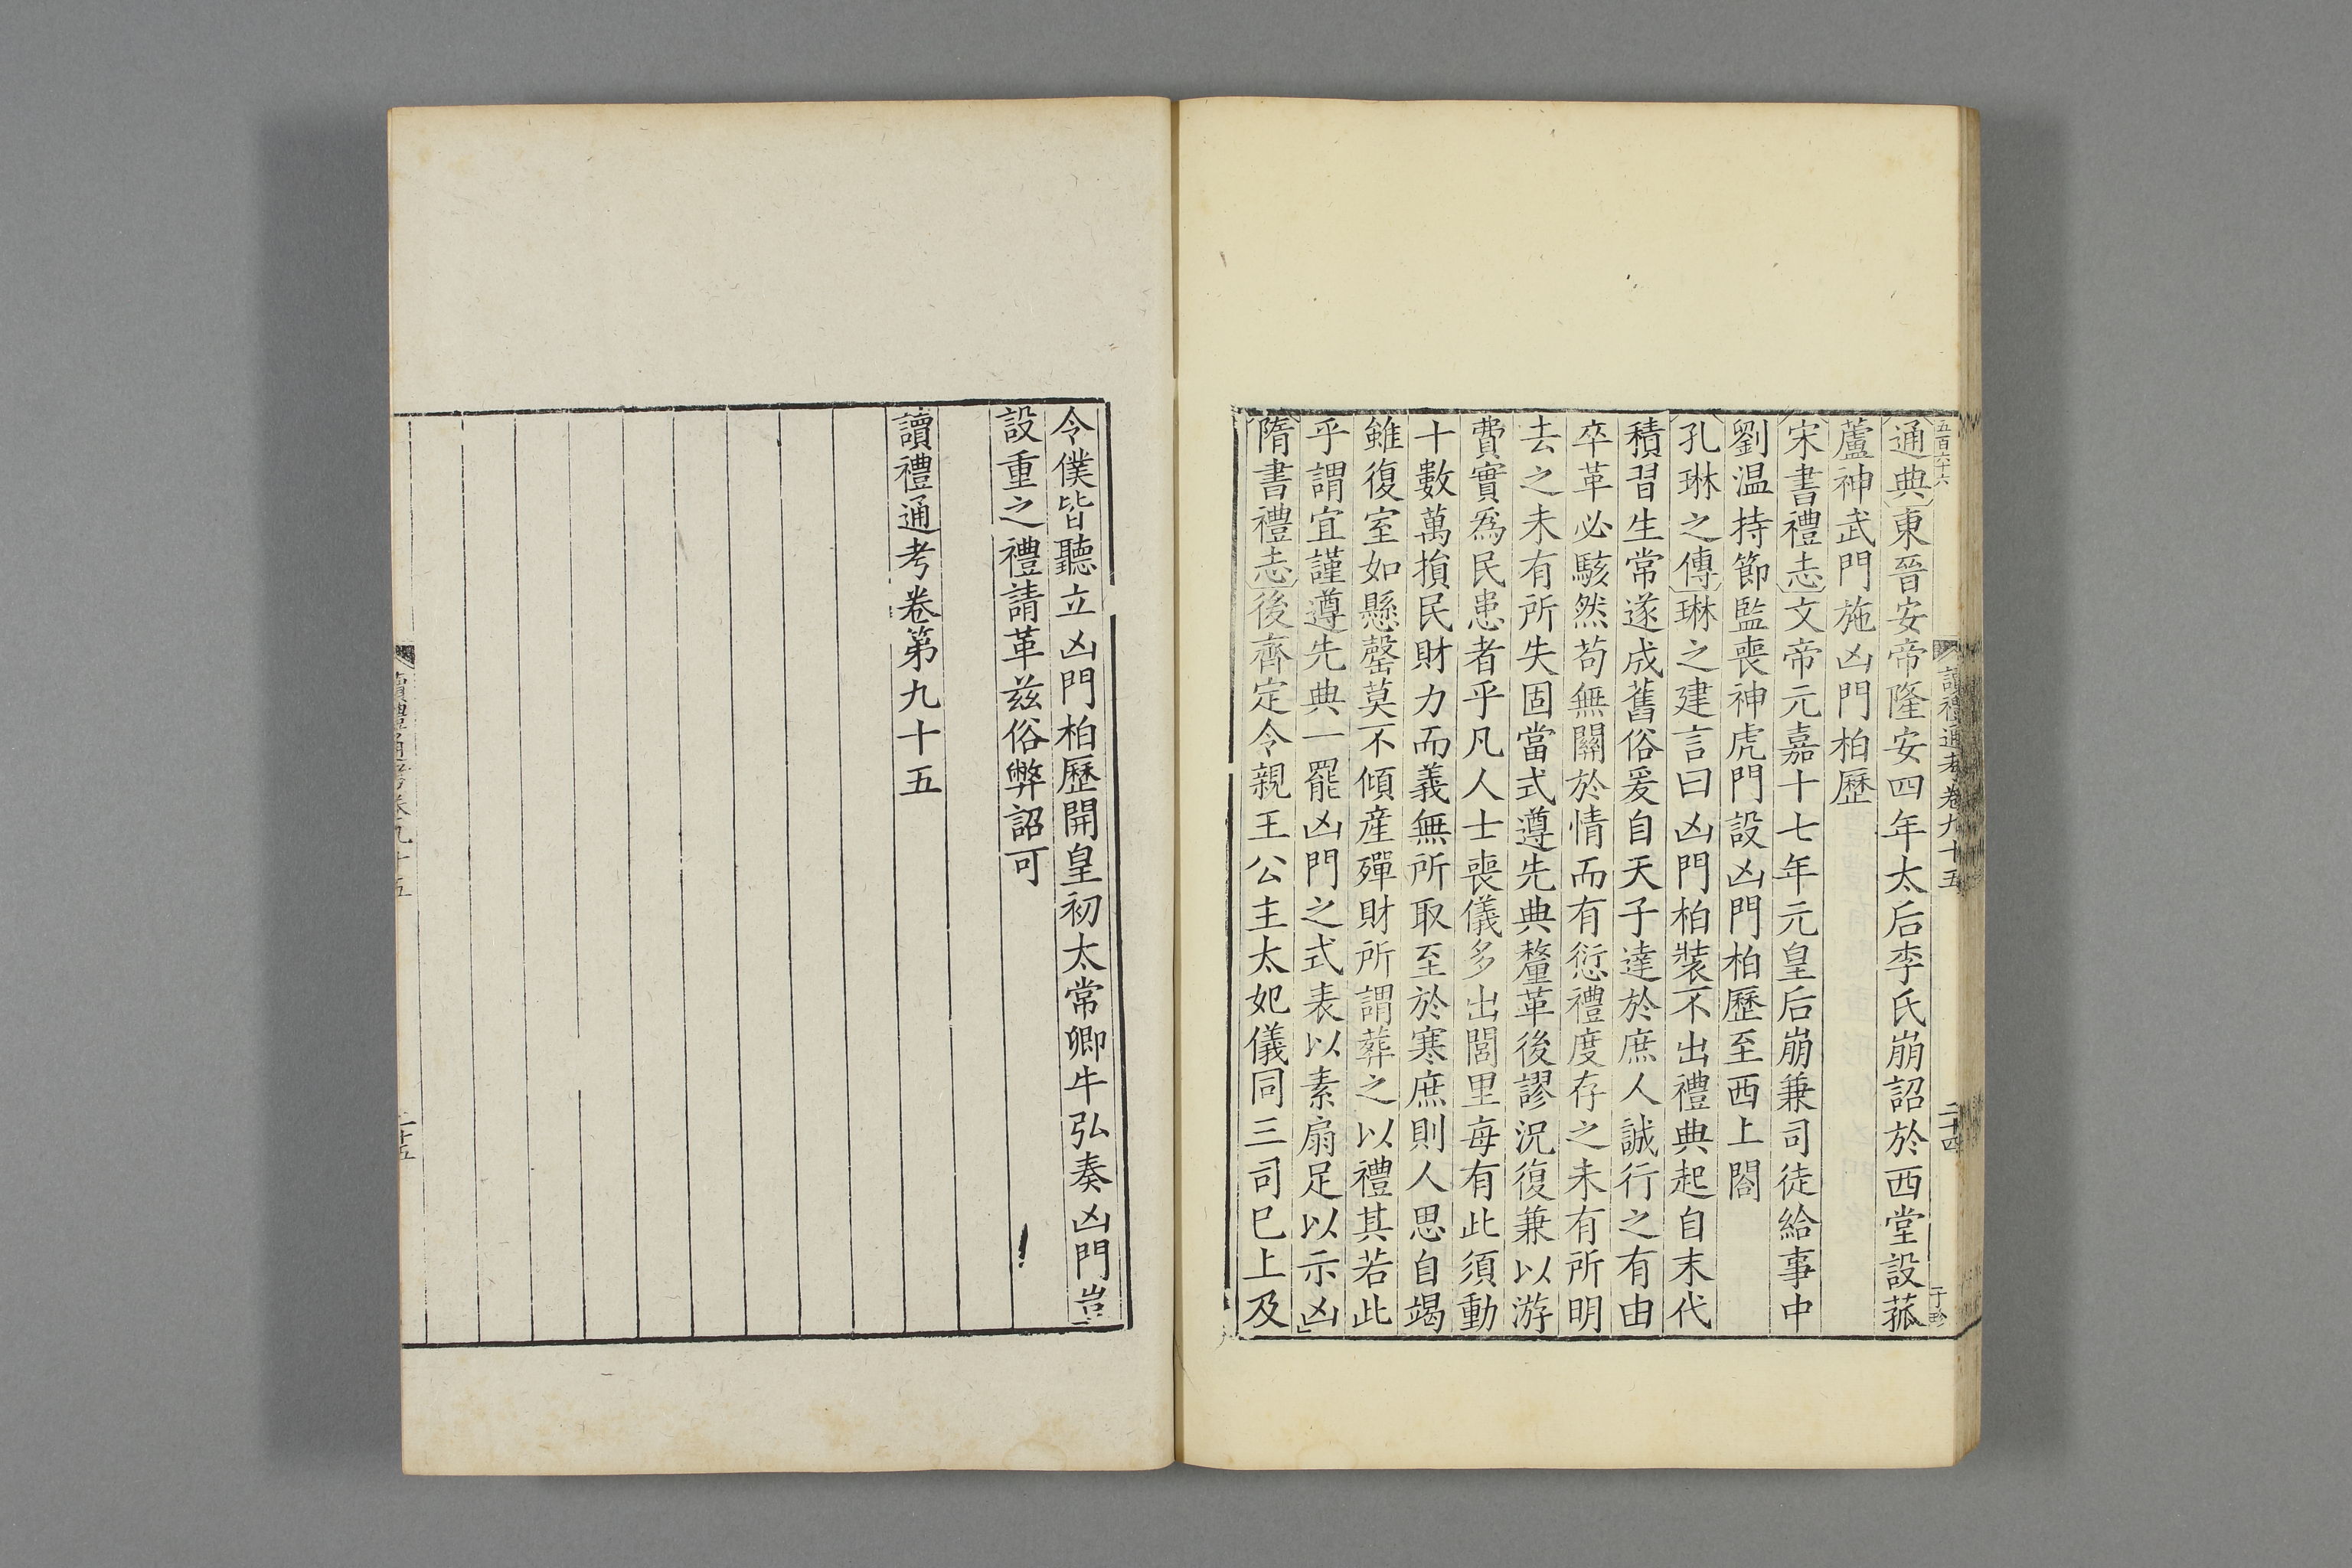 五百六十六
讀禮通考卷九十五
二十四
通典東晉安帝隆安四年太后李氏崩詔於西堂設菰
蘆神武門施凶門柏歷
宋書禮志文帝元嘉十七年元皇后崩兼司徒給事中
劉温持節監喪神虎門設凶門柏歷至西上閤
孔琳之傳琳之建言曰凶門柏裝不出禮典起自末代
積習生常遂成舊俗爰自天子達於庶人誠行之有由
卒革必駭然苟無關於情而有愆禮度存之未有所明
去之未有所失固當式遵先典釐革後謬況復兼以游
費實爲民患者乎凡人士喪儀多出閭里每有此須動
十數萬損民財力而義無所取至於寒庶則人思自竭
雖復室如懸罄莫不傾産殫財所謂葬之以禮其若此
乎謂宜謹遵先典一罷凶門之式表以素扇足以示凶
隋書禮志後齊定令親王公主太妃儀同三司已上及
令僕皆聽立凶門柏歷開皇初太常卿牛弘奏凶門豈
設重之禮請革兹俗弊詔可
讀禮通考卷第九十五
讀禮通考卷九十五
二十五